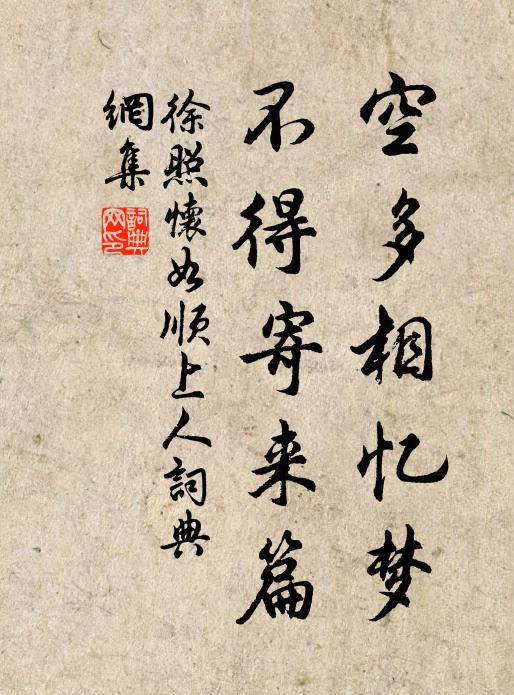 空多相忆梦
不得寄来篇
徐照懷如順上人詞典
網集
詞典
网印